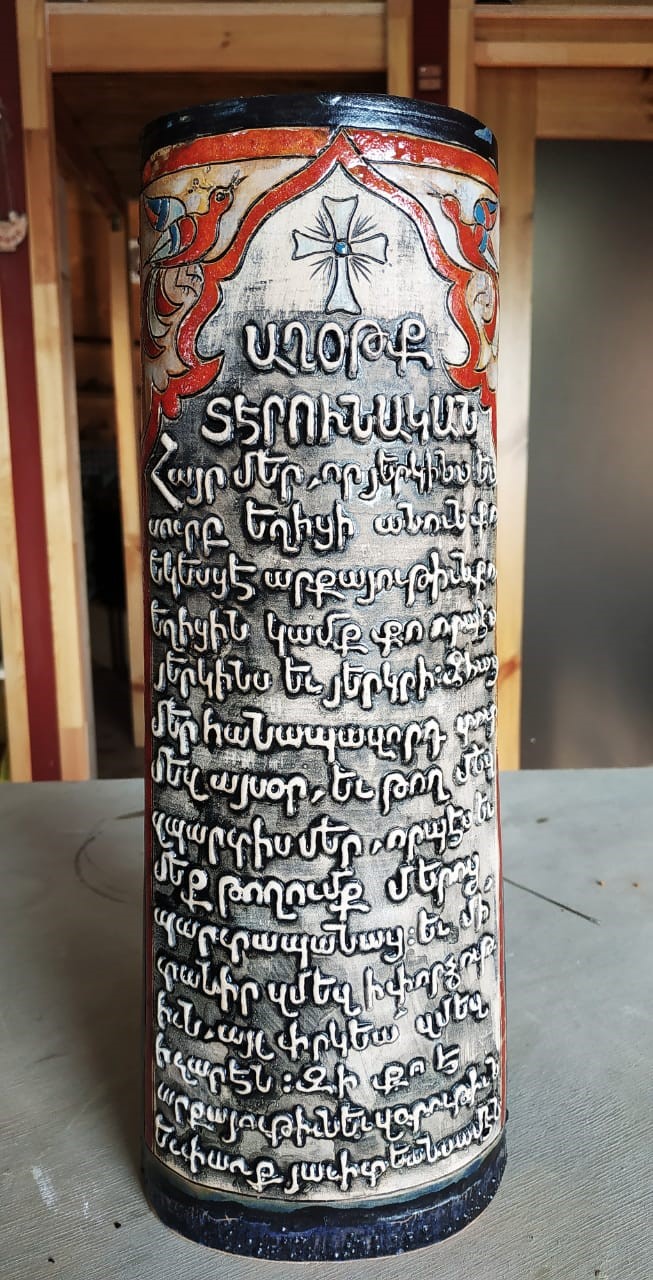 ԱՂՕԹՔ
ՏԷՐՈՒՆԱԿԱՆ
Հայր մեր, որ յերկինս ես
սուրբ եղիցի անուն քո
եկեսցէ արքայութիւն քո
եղիցին կամք քո որպէս
յերկինս եւ յերկրի: Զհաց
մեր հանապազորդ տուր
մեզ այսօր, եւ թող մեզ
զպարտիս մեր, որպէս եւ
մեք թողումք մերոց
պարտապանաց: եւ մի
տանիր զմեզ ի փորձութ
իւն. այլ փրկեա՛ զմեզ
ի չարէն: Զի քո է
արքայութիւն եւ զօրութիւն
եւ փառք յաւիտեանս ամէն